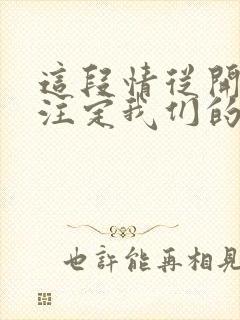 這段情從開
注定我们的
也許能再相見